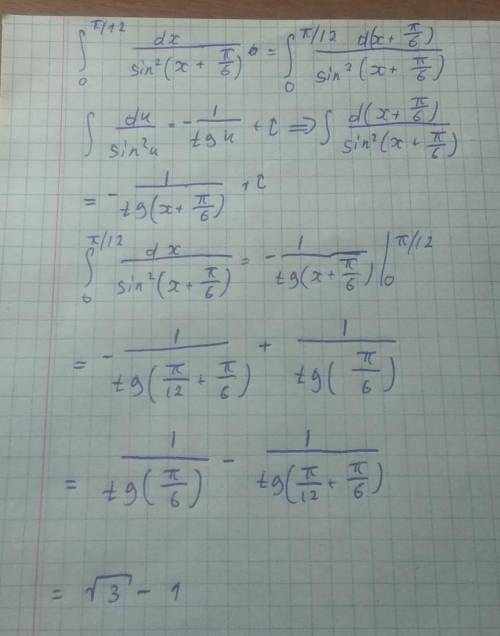 ∫₀^{π/12} dx / sin²(x + π/6) = ∫₀^{π/12} d(x + π/6) / sin²(x + π/6)
∫ du / sin²u = - 1 / tg u + C ⇒ ∫ d(x + π/6) / sin²(x + π/6)
= - 1 / tg(x + π/6) + C
∫₀^{π/12} dx / sin²(x + π/6) = - 1 / tg(x + π/6) |₀^{π/12}
= - 1 / tg(π/12 + π/6) + 1 / tg(π/6)
= 1 / tg(π/6) - 1 / tg(π/12 + π/6)
= √3 - 1